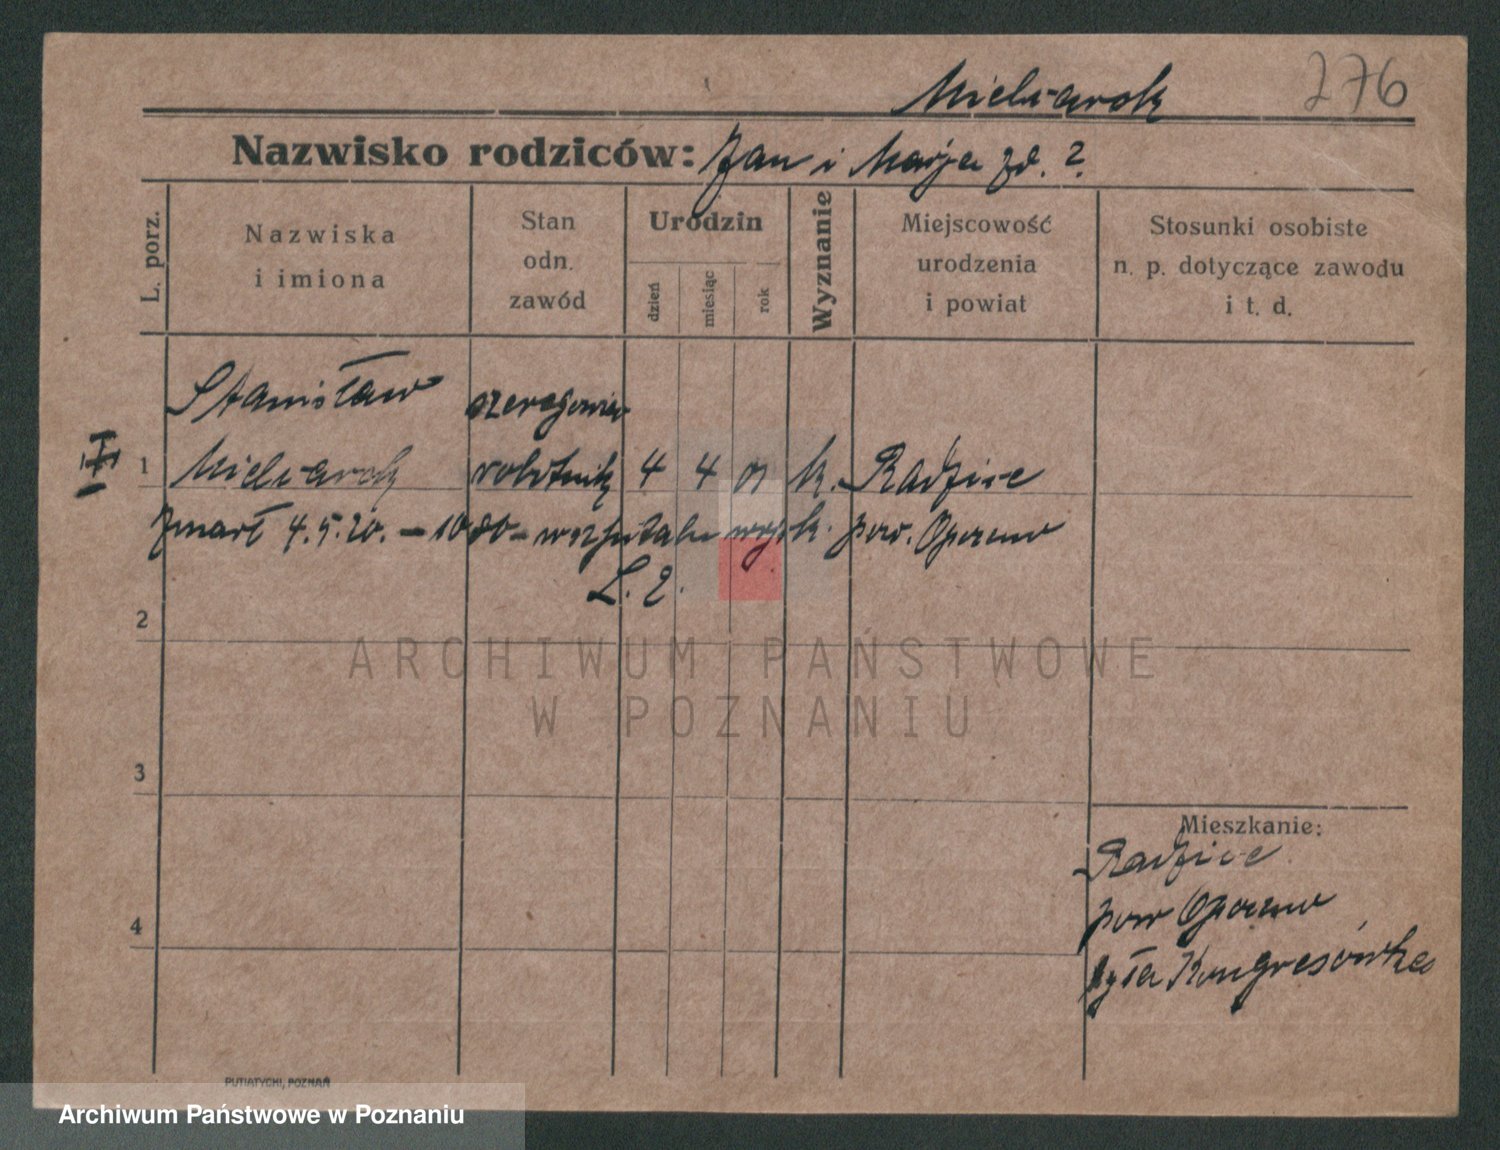 276
Mielczarek
Nazwisko rodziców: Jan i Marja zd. ?
L. porz.
Nazwiska i imiona
Stan odn. zawód
Urodzin
dzień
miesiąc
rok
Wyznanie
Miejscowość urodzenia i powiat
Stosunki osobiste n. p. dotyczące zawodu i t. d.
Stanisław szeregowiec
1 Mielczarek robotnik 4 4 k. Radzice
zmarł 4.5.20. w szpitalu wojsk. pow. Opoczno
L. 2.
2
3
4
Mieszkanie:
Radzice
pow Opoczno
była Kongresówka
PUTIATYCKI, POZNAŃ
ARCHIWUM PAŃSTWOWE
W POZNANIU
Archiwum Państwowe w Poznaniu